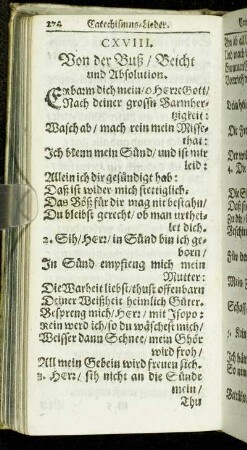 274 Catechismus-Lieder.
CXVIII.
Von der Buß / Beicht
und Absolution.
Erbarm dich mein / o Herre Gott /
Nach deiner grossn Barmher-
tzigkeit:
Wasch ab / mach rein mein Misse-
that:
Ich kenn mein Sünd / und ist mir
leid:
Allein ich dir gesündigt hab:
Daß ist wider mich stettiglich.
Das Böß für dir mag nit bestahn /
Du bleibst gerecht / ob man urthei-
let dich.
2. Sih / Herr / in Sünd bin ich ge-
born /
In Sünd empfieng mich mein
Mutter:
Die Warheit liebst / thust offenbarn
Deiner Weißheit heimlich Güter.
Bespreng mich / Herr / mit Isopo:
Rein werd ich / so du wäschest mich /
Weisser dann Schnee / mein Ghör
wird froh /
All mein Gebein wird freuen sich.
3. Herr / sih nicht an die Sünde
mein /
Thu